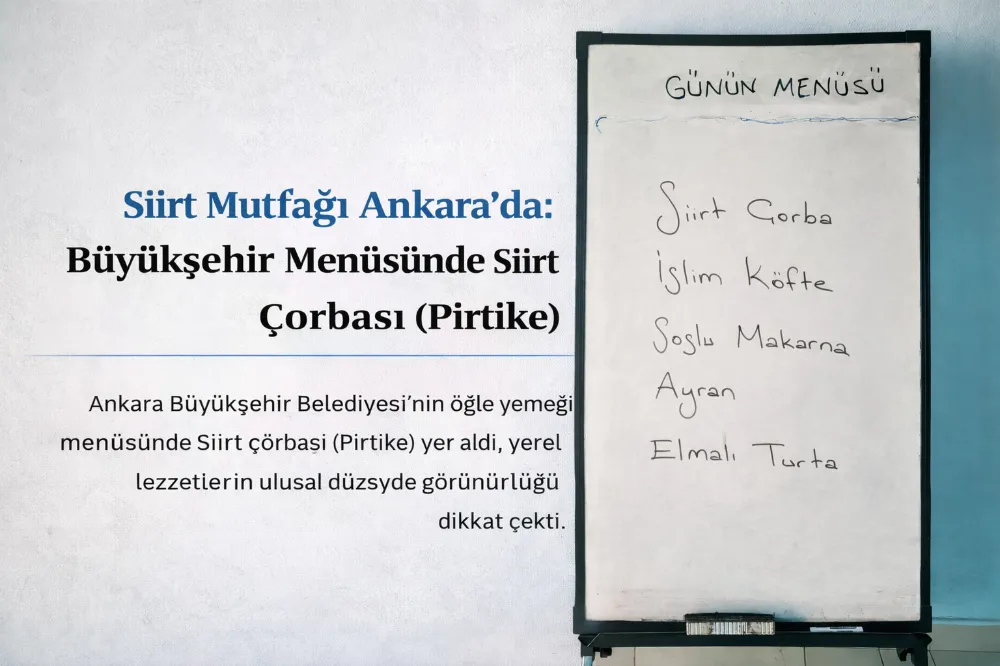 Siirt Mutfağı Ankara’da:
Büyükşehir Menüsünde Siirt
Çorbası (Pirtike)
Ankara Büyükşehir Belediyesi’nin öğle yemeği
menüsünde Siirt çörbaşi (Pirtike) yer aldi, yerel
lezzetlerin ulusal düzsyde görünürlüğü
dikkat çekti.
GÜNÜN MENÜSÜ
Siirt Çorba
İşlim Köfte
Soşlu Makarna
Ayran
Elmalı Turta